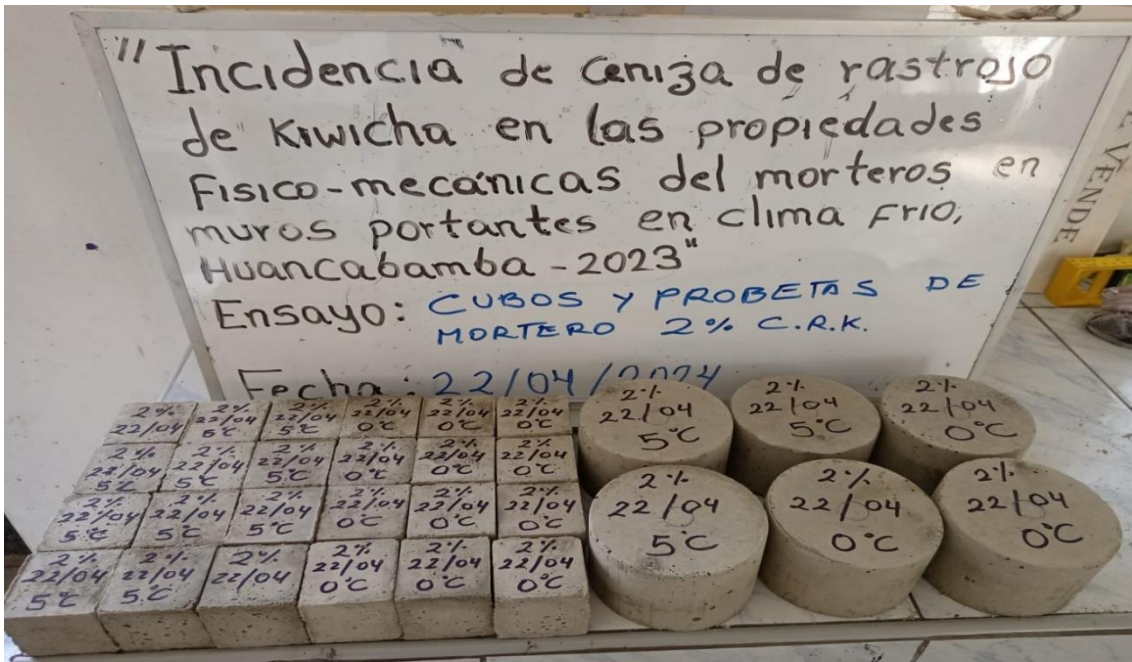 "Incidencia de ceniza de rastrojo
de Kiwicha en las propiedades
Fisico-mecánicas del morteros en
muros portantes en clima Frio,
Huancabamba - 2023"
Ensayo: CUBOS Y PROBETAS DE
MORTERO 2% C.R.K.
Fecha: 22/04/2024
VENDE
2%
22/04
2%
22/04
5°C
2%
22/04
5°C
2%
22/04
0°C
2%
22/04
0°C
2%
22/04
0°C
2%
22/04
5°C
2%
22/04
5°C
2%
22/04
5°C
2%
22/04
0°C
2%
22/04
0°C
2%
22/04
0°C
2%
22/04
5°C
2%
22/04
5°C
2%
22/04
5°C
2%
22/04
0°C
2%
22/04
0°C
2%
22/04
0°C
2%
22/04
5°C
2%
22/04
5°C
2%
22/04
2%
22/04
0°C
2%
22/04
0°C
2%
22/04
0°C
2%
22/04
5°C
2%
22/04
5°C
2%
22/04
0°C
2%
22/04
5°C
2%
22/04
0°C
2%
22/04
0°C